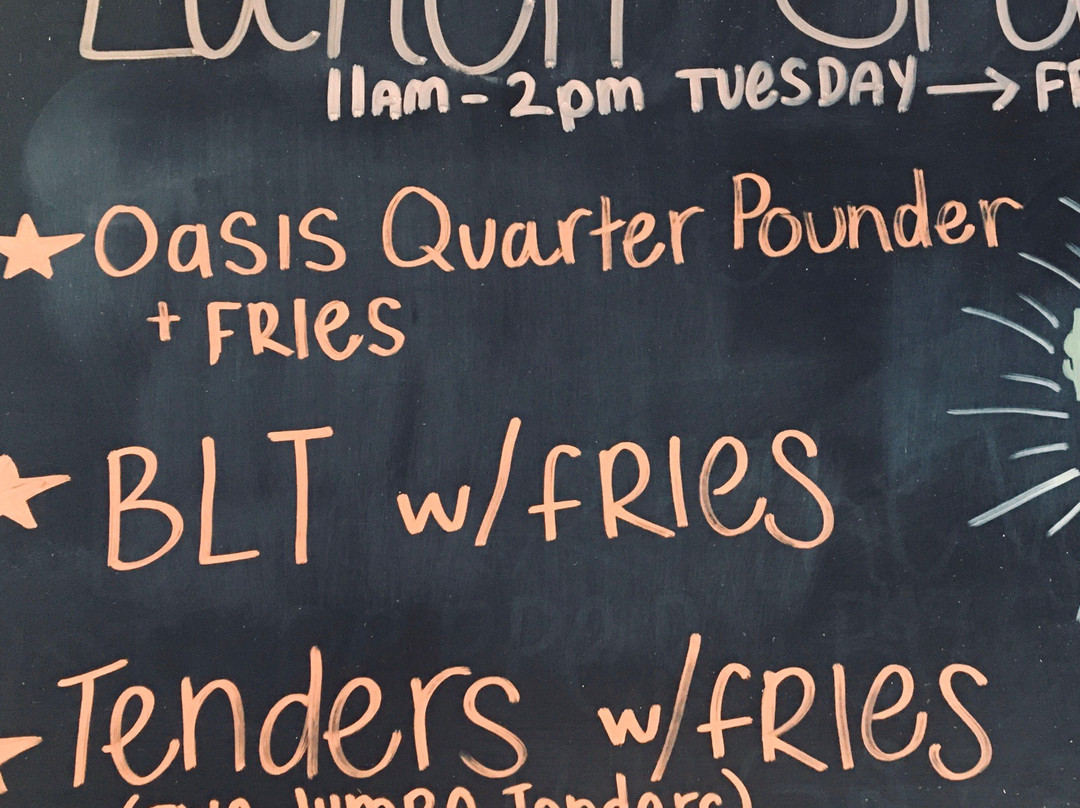 Lunch
11am - 2pm TUESDAY → FR
Oasis Quarter Pounder
+ FRIES
BLT w/fRIES
Tenders w/fRIES
Jumbo Tenders)